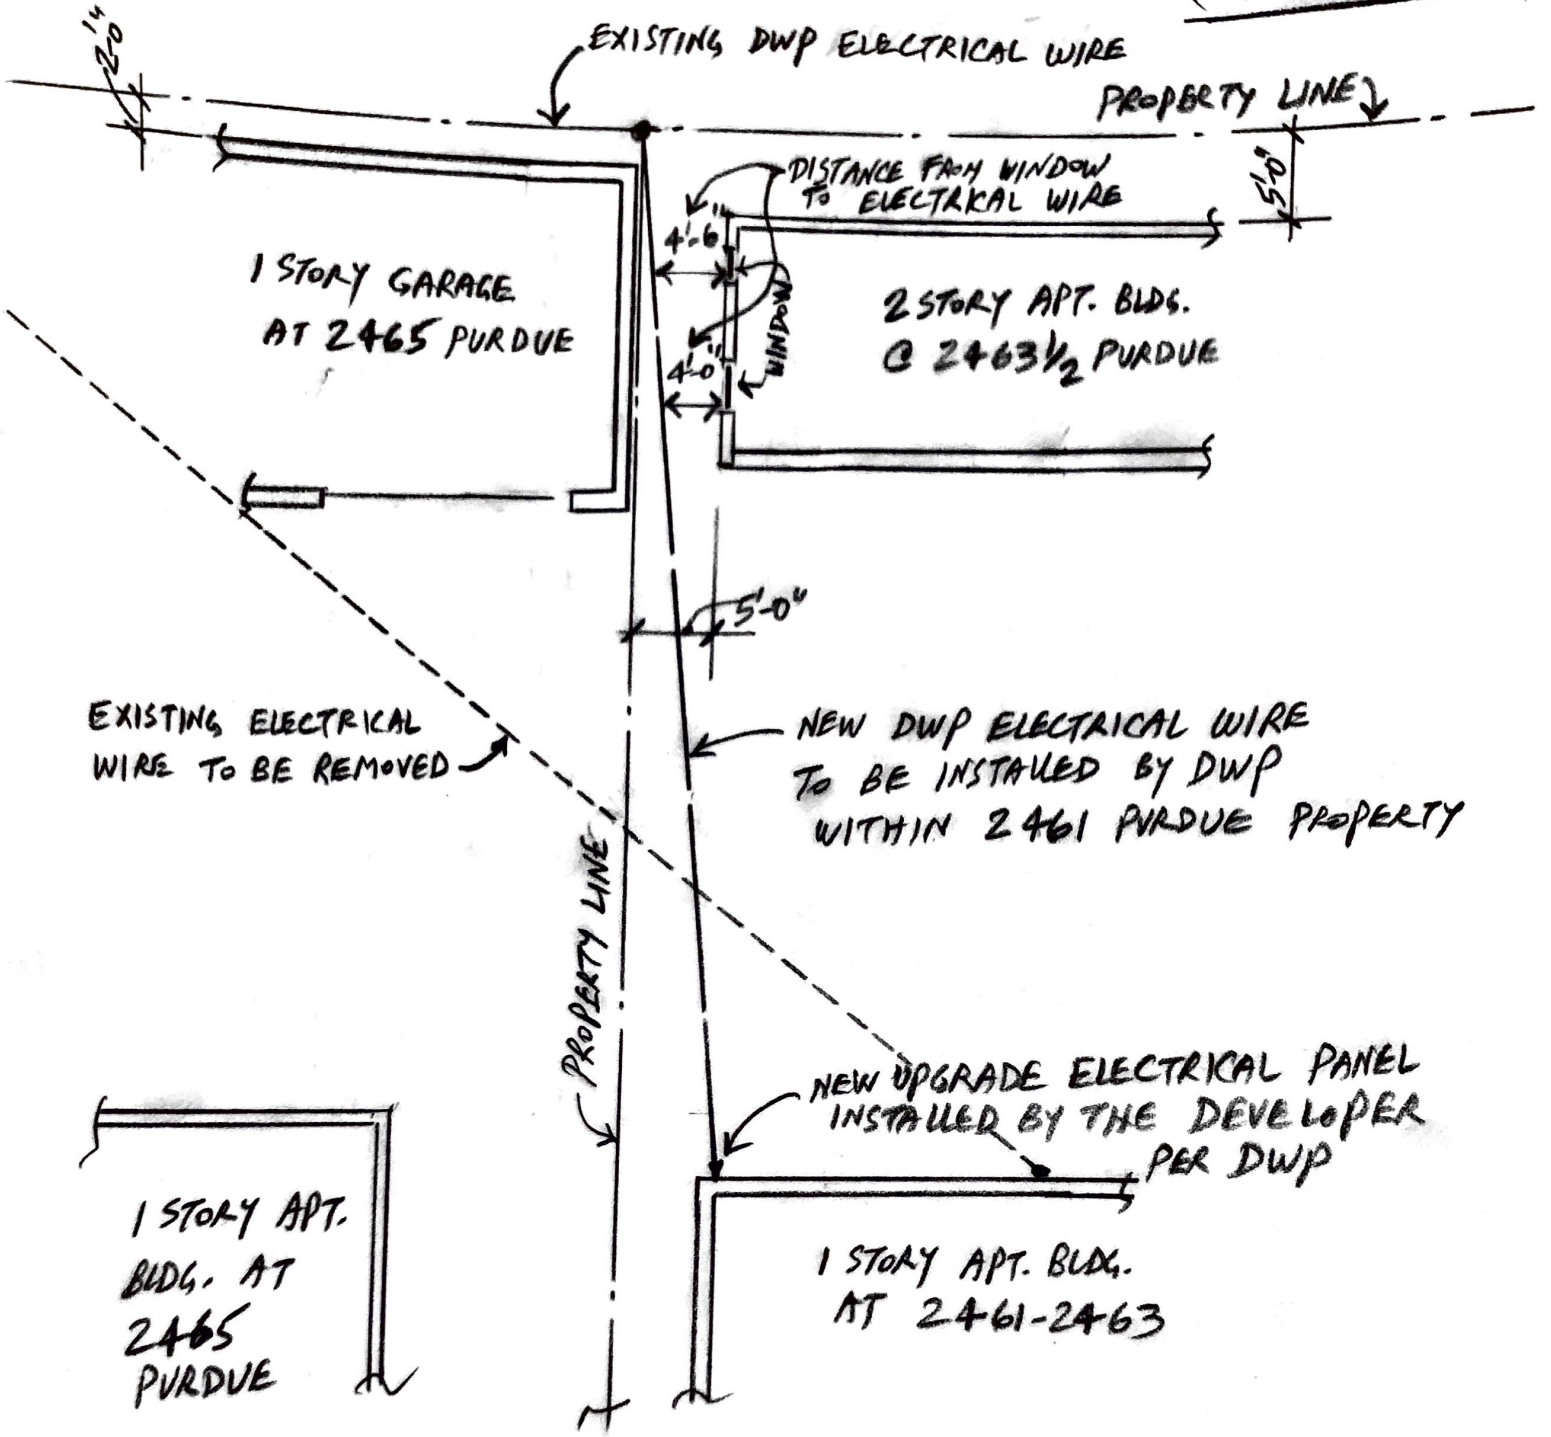 2'-0"
EXISTING DWP ELECTRICAL WIRE
PROPERTY LINE
DISTANCE FROM WINDOW
TO ELECTRICAL WIRE
5'-0"
4'-6"
1 STORY GARAGE
AT 2465 PURDUE
WINDOW
2 STORY APT. BLDG.
@ 2463 1/2 PURDUE
4'-0"
5'-0"
EXISTING ELECTRICAL
WIRE TO BE REMOVED
NEW DWP ELECTRICAL WIRE
TO BE INSTALLED BY DWP
WITHIN 2461 PURDUE PROPERTY
PROPERTY LINE
NEW UPGRADE ELECTRICAL PANEL
INSTALLED BY THE DEVELOPER
PER DWP
1 STORY APT.
BLDG. AT
2465
PURDUE
1 STORY APT. BLDG.
AT 2461-2463